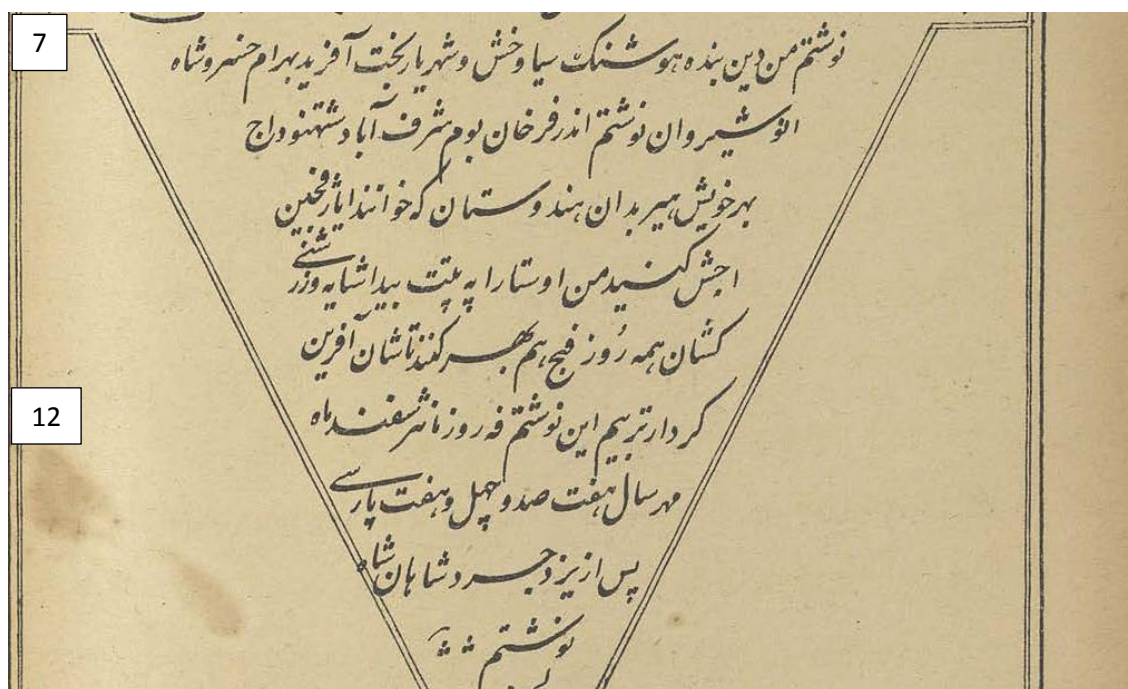 7
نوشتم من دین بنده هوشنک سیاوخش و شهریار بخت آفرید بهرام خسروشاه
انوشیروان نوشتم اندر فرخان بوم شرف آباد
بهر خویش هیربدان هندوستان که خوانند
کنید من اوستا را په پتت
کشان همه روز هم بهر کنند تا شان آفرین
12
کردار تریم این نوشتم فه روز مانثر سفند ماه
مهر سال هفت صد و چهل و هفت پارسی
پس از یزدجرد شاهان شاه
نوشتم